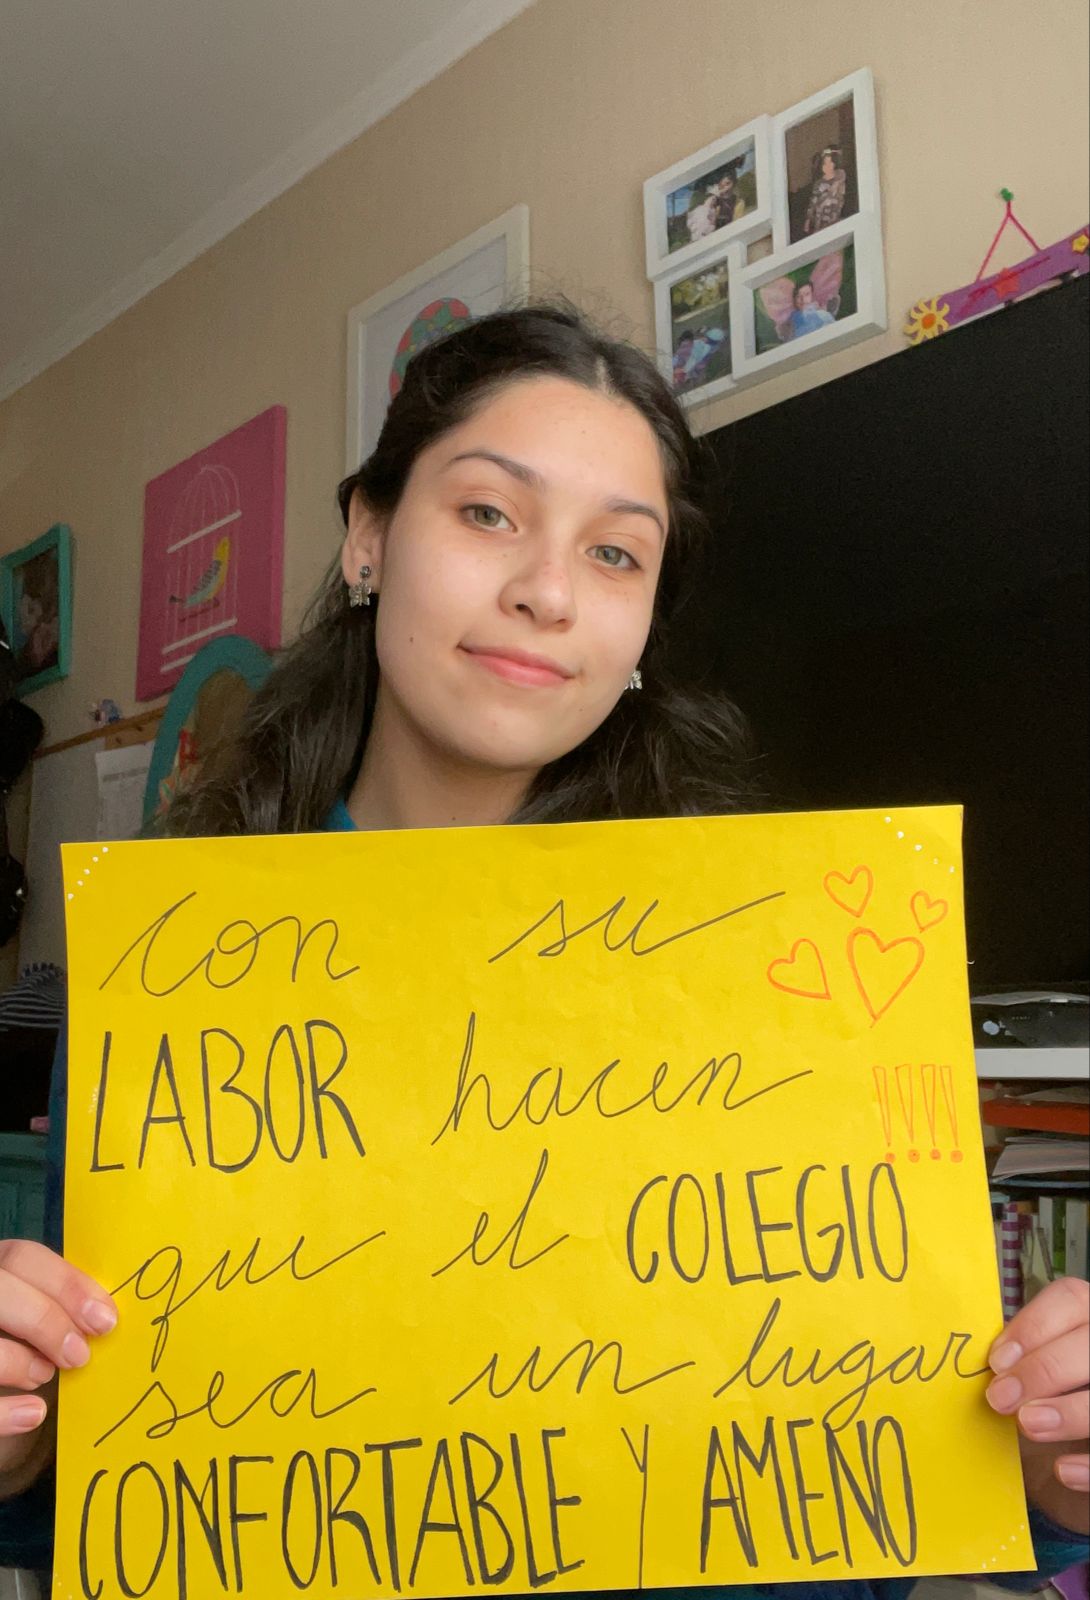 con su
LABOR hacen
!!!!
que el COLEGIO
sea un lugar
CONFORTABLE Y AMENO